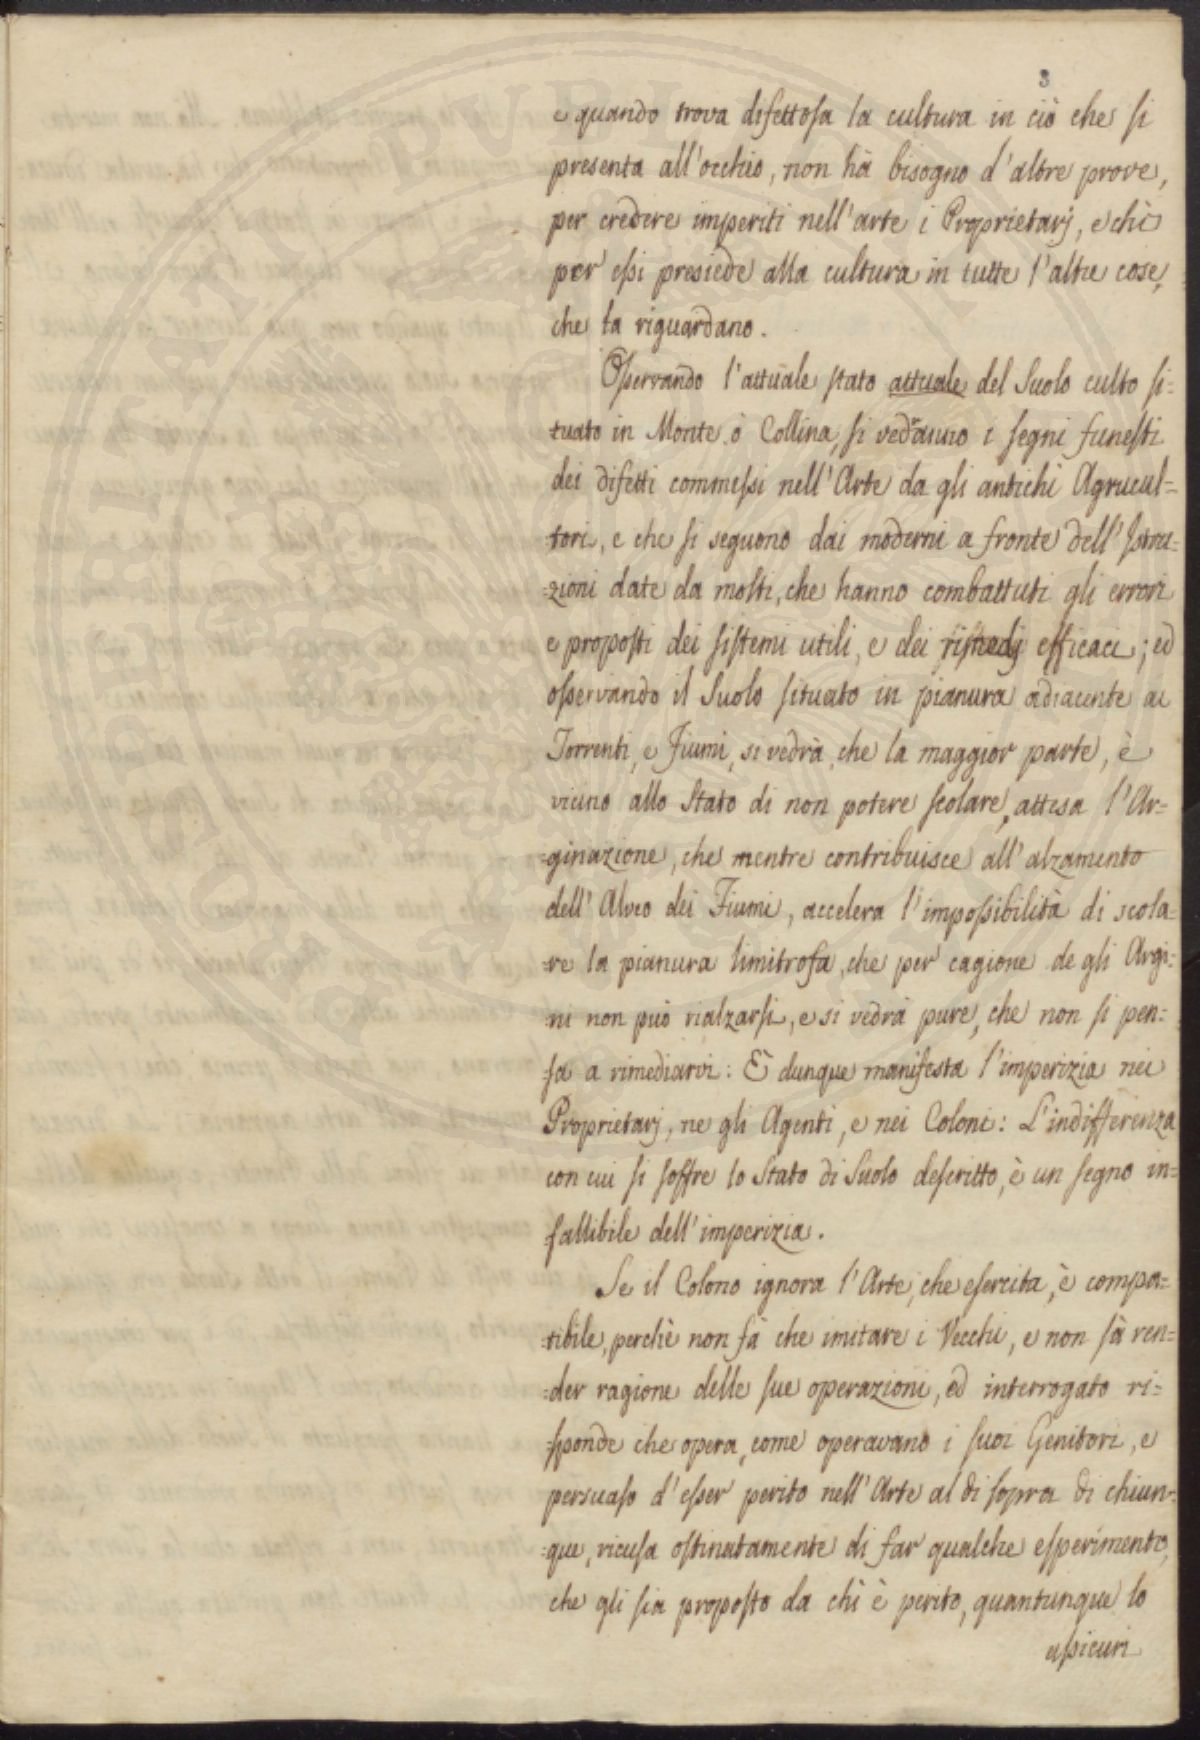 3
e quando trova difettosa la cultura in ciò che si
presenta all'occhio, non hà bisogno d'altre prove,
per credere imperiti nell'arte i Proprietarj, e chi
per essi presiede alla cultura in tutte l'altre cose,
che la riguardano.
Osservando l'attuale stato attuale del Suolo culto si=
tuato in Monte ò Collina, si vedranno i segni funesti
dei difetti commessi nell'Arte da gli antichi Agrucul=
tori, e che si seguono dai moderni a fronte dell'Istru=
=zioni date da molti, che hanno combattuti gli errori
e proposti dei sistemi utili, e dei rimedj efficaci; ed
osservando il Suolo situato in pianura adiacente ai
Torrenti, e Fiumi, si vedrà, che la maggior parte, è
vicino allo Stato di non potere scolare, attesa l'Ar=
=ginazione, che mentre contribuisce all'alzamento
dell'Alveo dei Fiumi, accelera l'impossibilità di scola=
=re la pianura limitrofa, che per cagione de gli Argi=
=ni non può rialzarsi, e si vedrà pure, che non si pen=
=sa a rimediarvi: È dunque manifesta l'imperizia nei
Proprietarj, ne gli Agenti, e nei Coloni: L'indifferenza
con cui si soffre lo Stato di Suolo descritto, è un segno in=
fallibile dell'imperizia.
Se il Colono ignora l'Arte, che esercita, è compa=
=tibile, perchè non fà che imitare i Vecchi, e non sà ren=
=der ragione delle sue operazioni, ed interrogato ri=
sponde che opera, come operavano i suoi Genitori, e
persuaso d'esser perito nell'Arte al di sopra di chiun=
=que, ricusa ostinatamente di far qualche esperimento,
che gli sia proposto da chì è perito, quantunque lo
assicuri